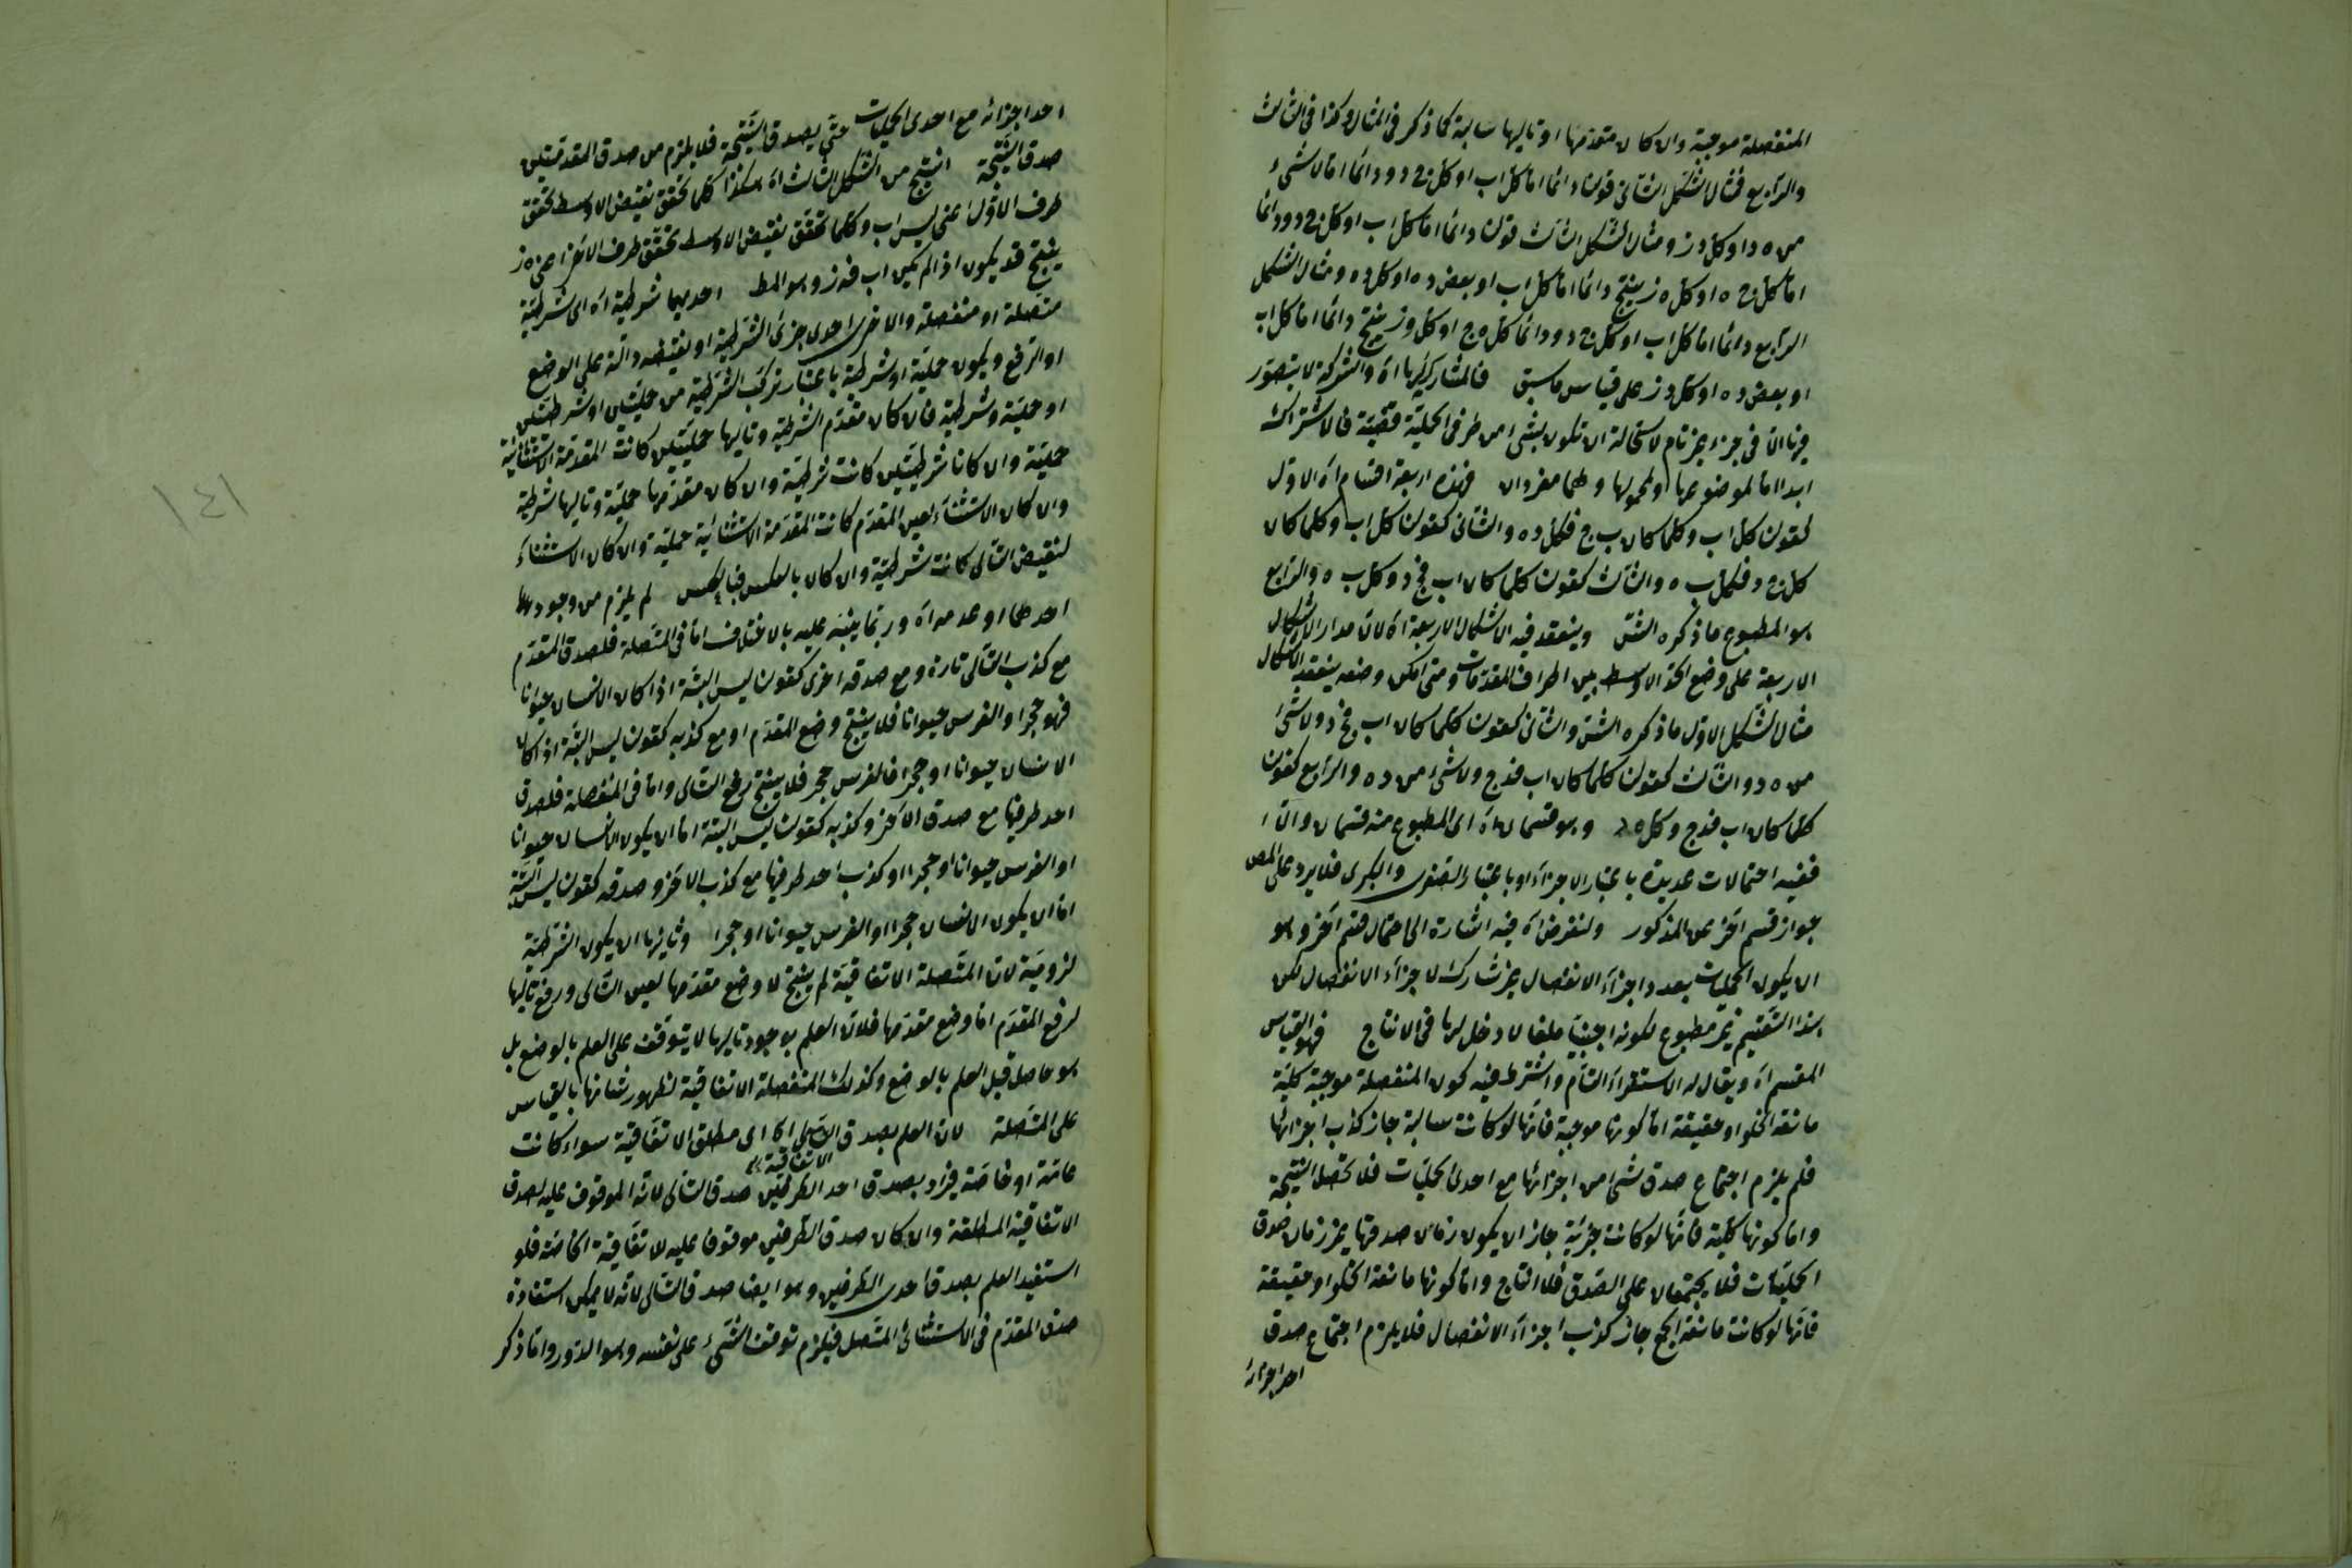 المنفصلة موجبة وان كان مقدمها او تاليها سالبة كما ذكر فى المثال وكذا فى الثالث
والرابع فمثال الشكل الثانى قولنا دائما اما كل اب او كل ج د ودائما اما لا شىء
من ه د او كل د ز ومثال الشكل الثالث قولنا دائما اما كل اب او كل ج د ودائما
اما كل ج ه او كل ه ز ينتج دائما اما كل اب او بعض د ه او كل د ه ومثال الشكل
الرابع دائما اما كل اب او كل ج د ودائما كل ه ج او كل و ز ينتج دائما اما كل اب
او بعض د ه او كل د ز على قياس ما سبق فالمشاركة لها اه والشركة لا يتصور
هنا الا فى جزء غير تام لاستحالة ان تكون شىء من طرفى الحملية قضية فالاشتراك
ابدا اما لموضوعها او لمحمولها وهما مفردان فهذه اربعة اقسام اه الاول
كقولنا كل اب وكلما كان ب ج فكل د ه والثانى كقولنا كل اب وكلما كان
كل ج د فكل ب ه والثالث كقولنا كلما كان اب فج د وكل ب ه والرابع
هو المطبوع ما ذكره الش وينعقد فيه الاشكال الاربعة اه لان مدار الاشكال
الاربعة على وضع الحد الاوسط بين اطراف المقدمات ومتى امكن وضعه ينعقد الاشكال
مثال الشكل الاول ما ذكره الش والثانى كقولنا كلما كان اب فج د ولا شىء
من ه د والثالث كقولنا كلما كان اب فدج ولا شىء من د ه والرابع كقولنا
كلما كان اب فدج وكل ه د وهو قسمان اه اى المطبوع منه قسمان والا
ففيه احتمالات عديدة باعتبار الاجزاء او باعتبار الصغرى والكبرى فلا يرد على المص
جواز قسم آخر غير المذكور ولنفرض اه فيه اشارة الى احتمال قسم آخر وهو
ان يكون الحمليات بعدد اجزاء الانفصال غير مشارك لاجزاء الانفصال لكن
هذا القسم غير مطبوع لكونه اجنبيا ملغا لا دخل لها فى الانتاج فهو القياس
المقسم اه ويقال له الاستقراء التام واشترط فيه كون المنفصلة موجبة كلية
مانعة الخلو او حقيقة اما كونها موجبة فانها لو كانت سالبة جاز كذب اجزائها
فلم يلزم اجتماع صدق شىء من اجزائها مع احدى الحمليات فلا تحصل النتيجة
واما كونها كلية فانها لو كانت جزئية جاز ان يكون زمان صدقها غير زمان صدق
الحمليات فلا يجتمعان على الصدق فلا انتاج واما كونها مانعة الخلو او حقيقة
فانها لو كانت مانعة الجمع جاز كذب اجزاء الانفصال فلا يلزم اجتماع صدق
احد اجزائه
احد اجزائه مع احدى الحمليات حتى يصدق النتيجة فلا يلزم من صدق المقدمتين
صدق النتيجة انتج من الشكل الثالث اه هكذا كلما تحقق نقيض الاوسط تحقق
طرف الاول اعنى ليس اب وكلما تحقق نقيض الاوسط تحقق طرف الآخر اعنى ه ز
ينتج قد يكون اذا لم يكن اب فه ز وهو المط احديهما شرطية اه اى شرطية
متصلة او منفصلة والاخرى احدى جزئى الشرطية او نقيضه دالة على الوضع
او الرفع ويكون حملية او شرطية باعتبار تركب الشرطية من حمليتين او شرطيتين
او حملية وشرطية فان كان مقدم الشرطية وتاليها حمليتين كانت المقدمة الاستثنائية
حملية وان كانا شرطيتين كانت شرطية وان كان مقدمها حملية وتاليها شرطية
وان كان الاستثناء لعين المقدم كانت المقدمة الاستثنائية حملية وان كان الاستثناء
لنقيض التالى كانت شرطية وان كان بالعكس فبالعكس لم يلزم من وجودهما
احدهما او عدمه اه وربما ينبه عليه بالاختلاف اما فى المتصلة فلصدق المقدم
مع كذب التالى تارة ومع صدقه اخرى كقولنا ليس البتة اذا كان الانسان حيوانا
فهو حجرا والفرس حيوانا فلا ينتج وضع المقدم او مع كذبه كقولنا ليس البتة اذا كان
الانسان حيوانا او حجرا فالفرس حجر فلا ينتج رفع التالى واما فى المنفصلة فلصدق
احد طرفيها مع صدق الآخر وكذبه كقولنا ليس البتة اما ان يكون الانسان حيوانا
او الفرس حيوانا او حجرا او كذب احد طرفيها مع كذب الآخر وصدقه كقولنا ليس البتة
اما ان يكون الانسان حجرا او الفرس حيوانا او حجرا وثانيها ان يكون الشرطية
لزومية لان المتصلة الاتفاقية لم ينتج لا وضع مقدمها لعين التالى ورفع تاليها
لرفع المقدم اما وضع مقدمها فلان العلم بوجود تاليها لا يتوقف على العلم بالوضع بل
هو حاصل قبل العلم بالوضع وكذلك المنفصلة الاتفاقية لظهور شانها بالقياس
على المتصلة لان العلم بصدق الاتفاقية اه اى مطلق الاتفاقية سواء كانت
عامة او خاصة فيراد بصدق احد الطرفين صدق التالى لانه الموقوف عليه لصدق
الاتفاقية المطلقة وان كان صدق الطرفين موقوفا عليه للاتفاقية الخاصة فلو
استفيد العلم بصدق احدى الطرفين وهو ايضا صدق التالى لانه لا يمكن استفادة
صدق المقدم فى الاستثنائى المتصل فيلزم توقف الشىء على نفسه وهو الدور واما ذكر
١٤١